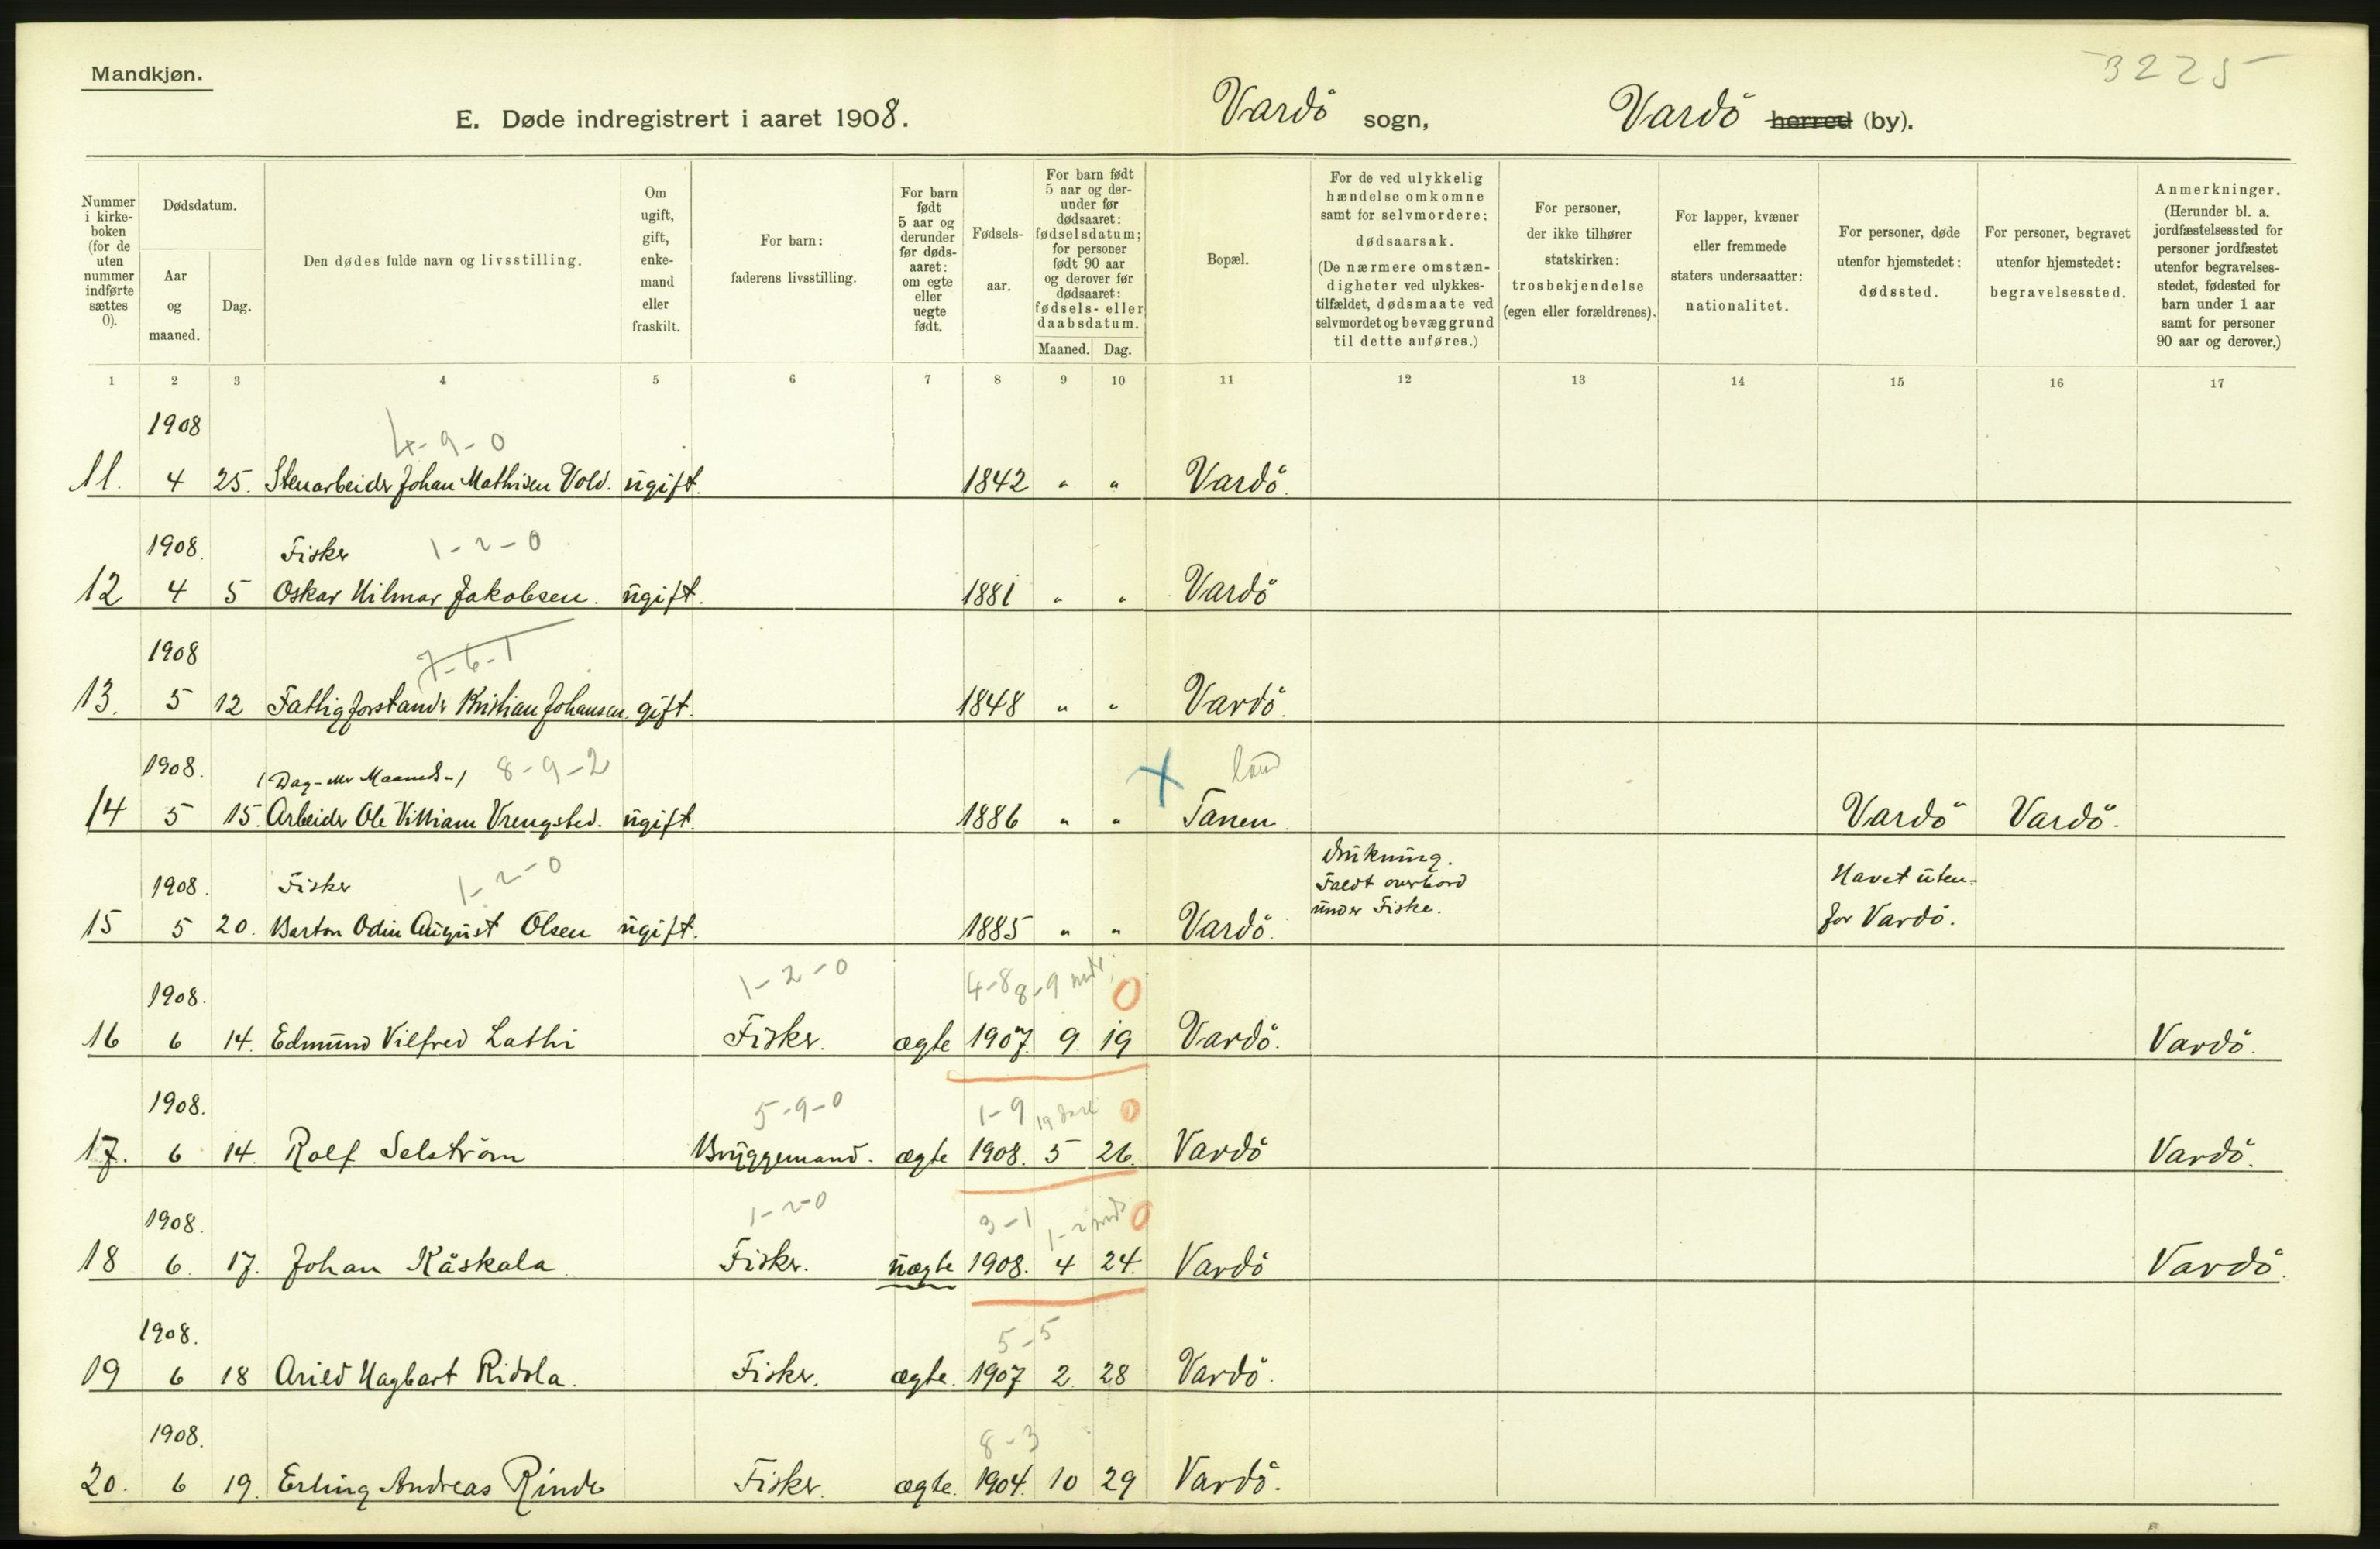 Mandkjøn.
3225
E. Døde indregistrert i aaret 1908. Vardö sogn, Vardö herred (by).
Nummer i kirkeboken (for de uten nummer indførte sættes 0).
Dødsdatum.
Aar og maaned.
Dag.
Den dødes fulde navn og livsstilling.
Om ugift, gift, enkemand eller fraskilt.
For barn: faderens livsstilling.
For barn født 5 aar og derunder før dødsaaret: om egte eller uegte født.
Fødselsaar.
For barn født 5 aar og derunder før dødsaaret: fødselsdatum; for personer født 90 aar og derover før dødsaaret: fødsels- eller daabsdatum.
Maaned. Dag.
Bopæl.
For de ved ulykkelig hændelse omkomne samt for selvmordere: dødsaarsak. (De nærmere omstændigheter ved ulykkestilfældet, dødsmaate ved selvmordet og bevæggrund til dette anføres.)
For personer, der ikke tilhører statskirken: trosbekjendelse (egen eller forældrenes).
For lapper, kvæner eller fremmede staters undersaatter: nationalitet.
For personer, døde utenfor hjemstedet: dødssted.
For personer, begravet utenfor hjemstedet: begravelsessted.
Anmerkninger. (Herunder bl. a. jordfæstelsessted for personer jordfæstet utenfor begravelsesstedet, fødested for barn under 1 aar samt for personer 90 aar og derover.)
1 2 3 4 5 6 7 8 9 10 11 12 13 14 15 16 17
1908 4-9-0
11. 4 25. Stenarbeider Johan Mathisen Vold. ugift. 1842 " " Vardö.
1908. Fisker 1-2-0
12 4 5 Oskar Hilmar Jakobsen. ugift. 1881 " " Vardö
1908 7-6-1
13. 5 12 Fattigforstander Kristian Johansen. gift. 1848 " " Vardö.
1908. (Dag- eller Maaneds-) 8-9-2 X land
14 5 15. Arbeider Ole Villiam Vrengsted. ugift. 1886 " " Tanen. Vardö Vardö.
1908. Fisker 1-2-0 Drukning. Faldt overbord under Fiske. Havet uten-
15 5 20. Barton Odin August Olsen ugift. 1885 " " Vardö. for Vardö.
1908. 1-2-0 4-8 8-9 mdr. 0
16 6 14. Edmund Vilfred Lathi Fisker. ægte 1907. 9. 19 Vardö. Vardö.
1908. 5-9-0 1-9 0
17. 6 14. Rolf Selström Bryggemand. ægte 1908. 5 26. Vardö Vardö.
1908. 1-2-0 3-1 1-2 mdr 0
18 6. 17. Johan Kåskala Fisker. uægte 1908. 4 24. Vardö Vardö.
1908. 5-5
19 6 18 Arild Hagbart Ridola. Fisker. ægte. 1907 2. 28 Vardö.
1908. 8-3
20. 6 19. Erling Andreas Rinde Fisker. ægte. 1904. 10 29 Vardö.